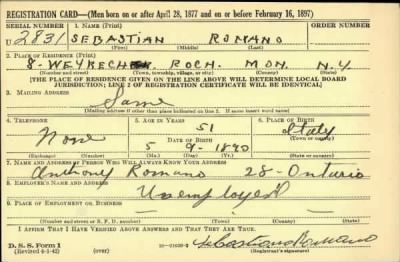 REGISTRATION CARD—(Men born on or after April 28, 1877 and on or before February 16, 1897)
SERIAL NUMBER 1. NAME (Print) ORDER NUMBER
U 2831 SEBASTIAN ROMANO
(First) (Middle) (Last)
2. PLACE OF RESIDENCE (Print)
8- ROCH. MON. N.Y
(Number and street) (Town, township, village, or city) (County) (State)
[THE PLACE OF RESIDENCE GIVEN ON THE LINE ABOVE WILL DETERMINE LOCAL BOARD
JURISDICTION; LINE 2 OF REGISTRATION CERTIFICATE WILL BE IDENTICAL]
3. MAILING ADDRESS
Same
[Mailing address if other than place indicated on line 2. If same insert word same]
4. TELEPHONE 5. AGE IN YEARS 6. PLACE OF BIRTH
51
None DATE OF BIRTH Italy
(Town or county)
5 9 - 1890
(Exchange) (Number) (Mo.) (Day) (Yr.) (State or country)
7. NAME AND ADDRESS OF PERSON WHO WILL ALWAYS KNOW YOUR ADDRESS
Anthony Romano 28- Ontario
8. EMPLOYER'S NAME AND ADDRESS
Unemployed
9. PLACE OF EMPLOYMENT OR BUSINESS
(Number and street or R. F. D. number) (Town) (County) (State)
I AFFIRM THAT I HAVE VERIFIED ABOVE ANSWERS AND THAT THEY ARE TRUE.
D. S. S. Form 1
(Revised 4-1-42) Sebastiano Romano
(Registrant's signature)